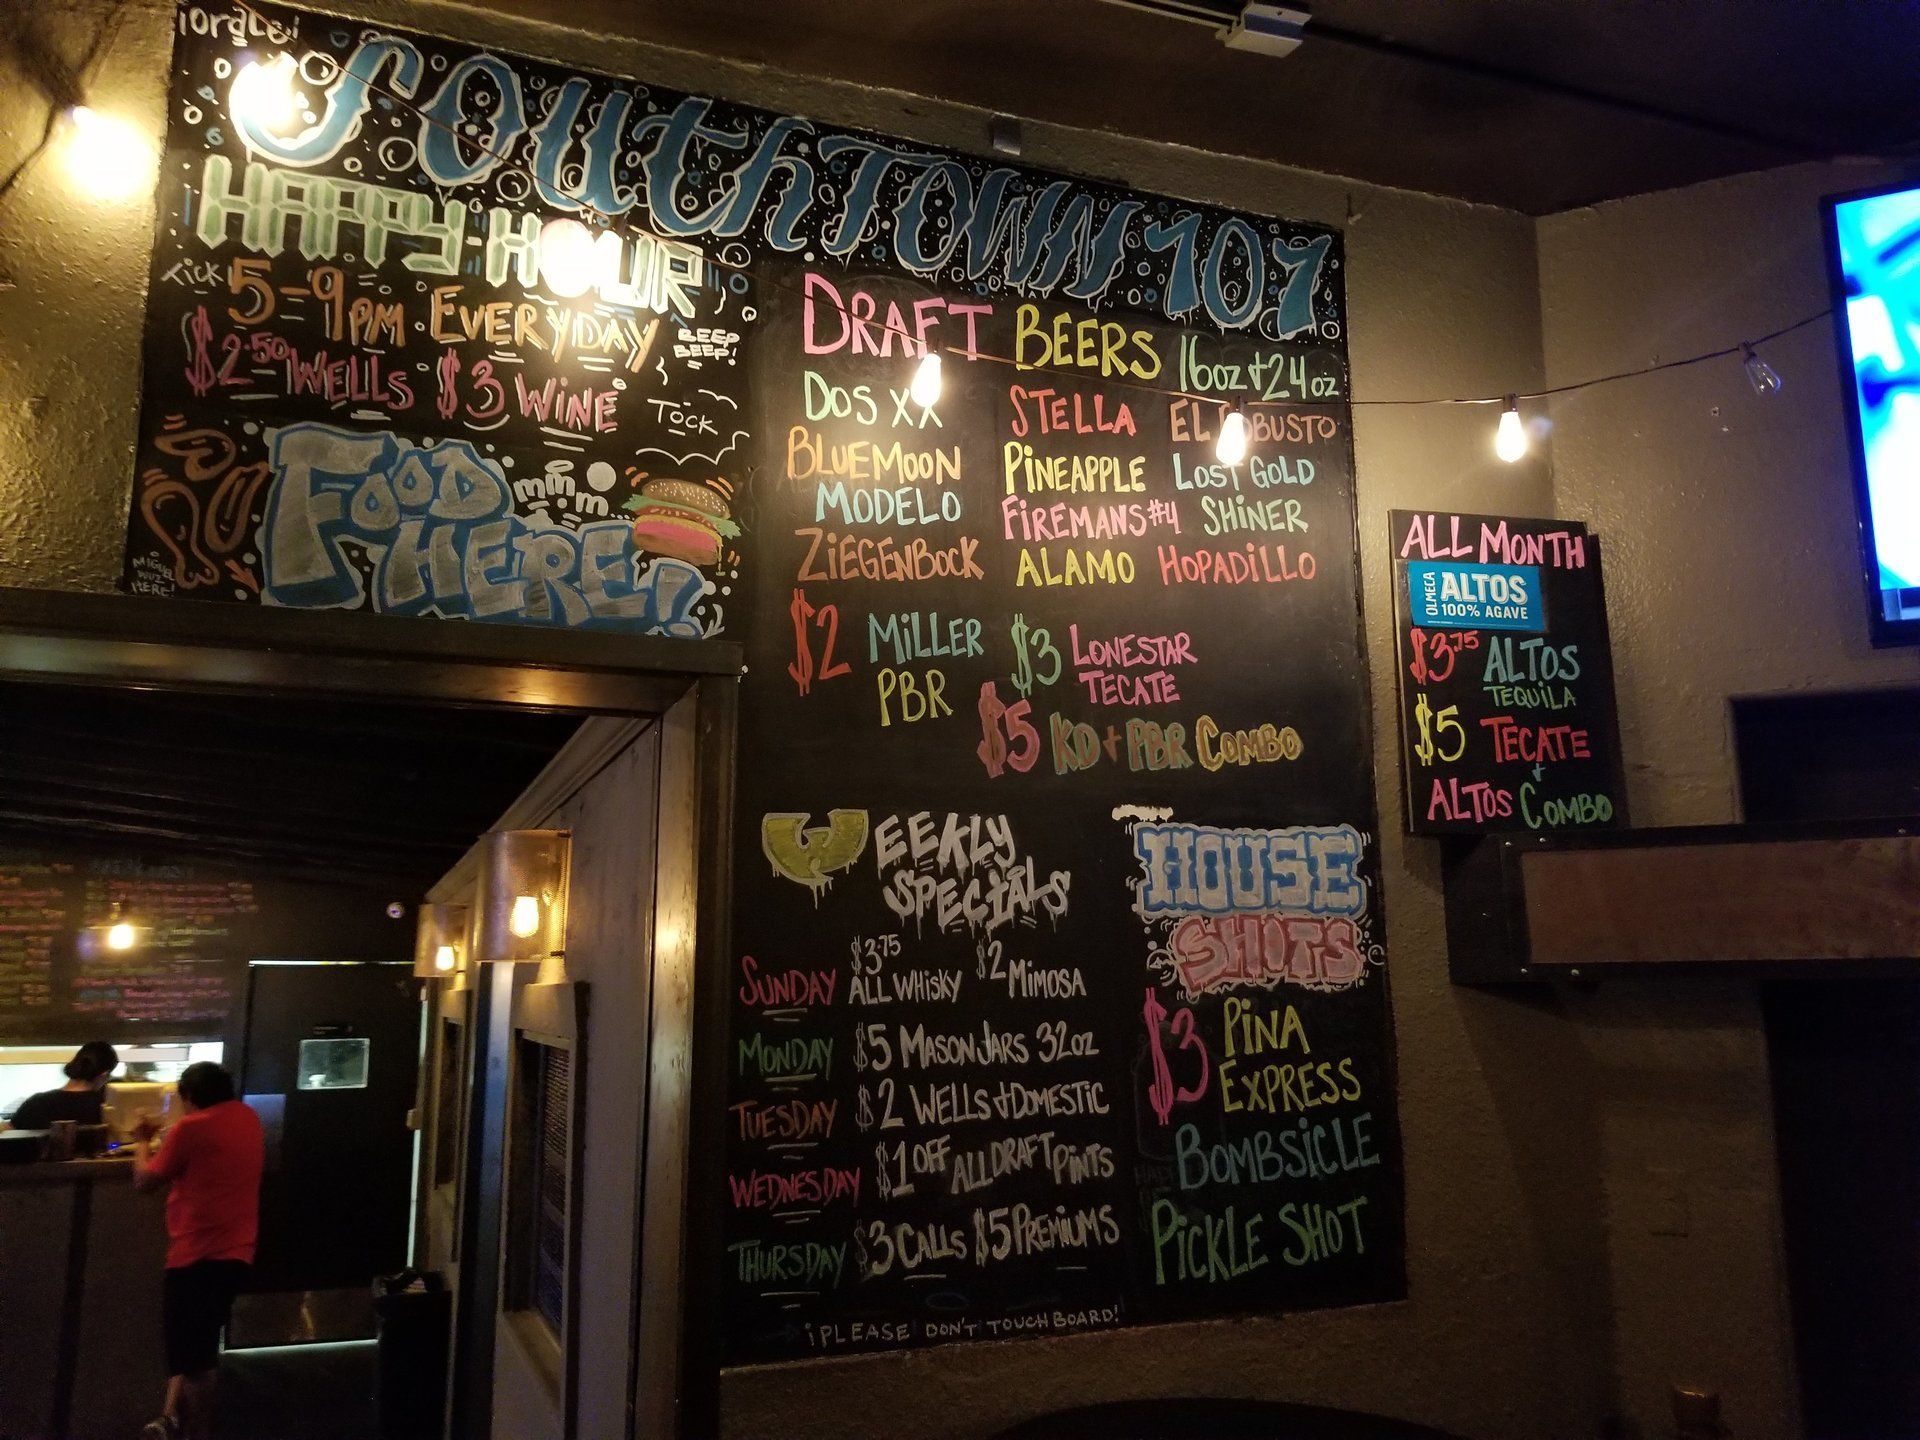 SouthTown 101
HAPPY HOUR
TICK
5-9PM EVERYDAY
BEEP
BEEP!
$2.50 WELLS $3 WINE
TOCK
FOOD
mmm...
HERE!
MIGUEL
WUZ
HERE!
DRAFT BEERS 16oz + 24oz
DOS XX STELLA EL ROBUSTO
BLUEMOON PINEAPPLE LOST GOLD
MODELO FIREMANS #4 SHINER
ZIEGENBOCK ALAMO HOPADILLO
$2 MILLER
PBR
$3 LONESTAR
TECATE
$5 KD + PBR COMBO
WEEKLY
SPECIALS
SUNDAY $3.75 ALL WHISKY $2 MIMOSA
MONDAY $5 MASON JARS 32oz
TUESDAY $2 WELLS + DOMESTIC
WEDNESDAY $1 OFF ALL DRAFT PINTS
THURSDAY $3 CALLS $5 PREMIUMS
¡PLEASE DON'T TOUCH BOARD!
HOUSE
SHOTS
$3 PINA
EXPRESS
BOMBSICLE
PICKLE SHOT
ALL MONTH
OLMECA
ALTOS
100% AGAVE
$3.75 ALTOS
TEQUILA
$5 TECATE
+
ALTOS COMBO